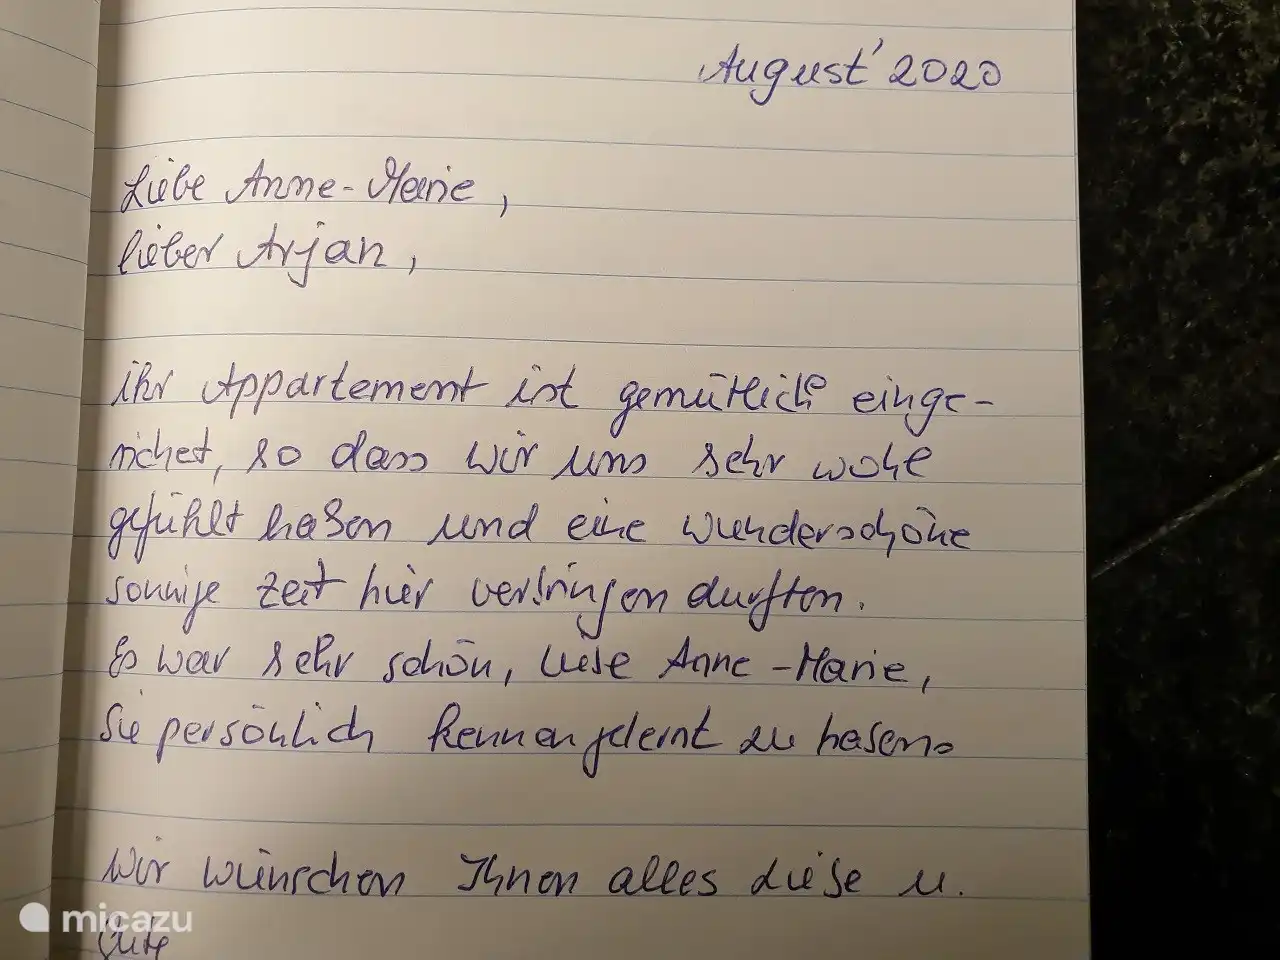 August' 2020
Liebe Anne-Marie,
lieber Arjan,
ihr Appartement ist gemütlich einge-
richet, so dass wir uns sehr wohl
gefühlt haben und eine wunderschöne
sonnige Zeit hier verbringen durften.
Es war sehr schön, liebe Anne-Marie,
Sie persönlich kennengelernt zu haben.
Wir wünschen Ihnen alles Liebe u.
Gute
micazu